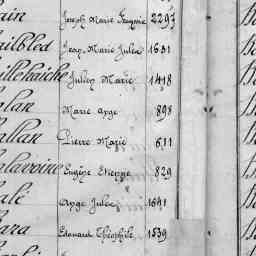 ain Joseph Marie François 2297
ailbled Jean Marie Julien 1631
illehaiche Julien Marie 1418
alan Marie Ange 898
allan Pierre Marie 611
alavoine Eugène Etienne 829
alé Ange Julien 1691
ara Edouard Théophile 1539